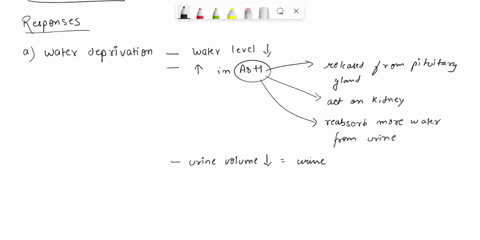 Responses
a) water deprivation — water level ↓
— ↑ in ADH
released from pituitary
gland
act on kidney
reabsorb more water
from urine
— urine volume ↓ = urine